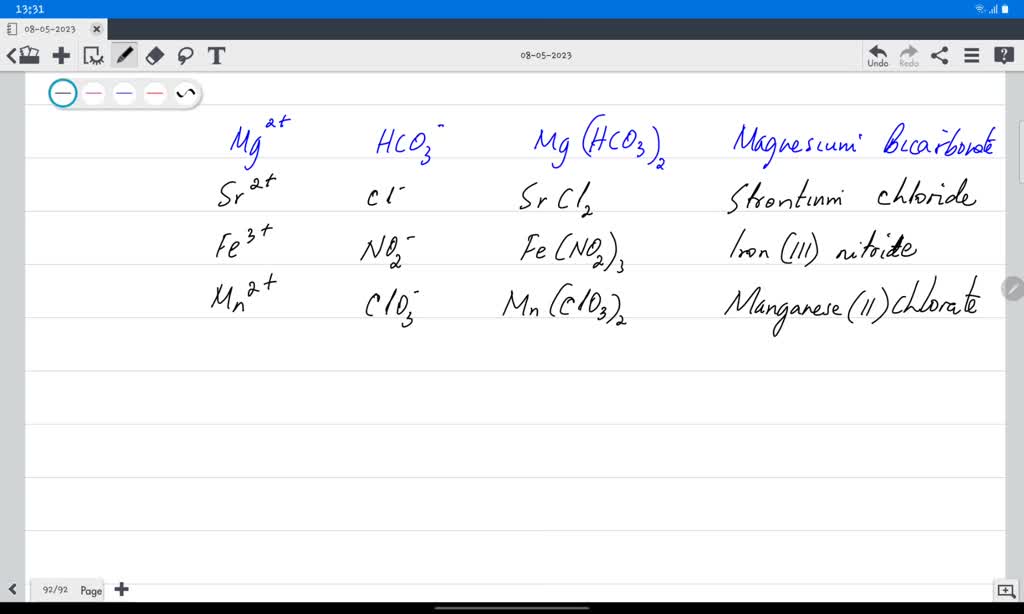 13:31
08-05-2023
T 08-05-2023 Undo Redo
Mg²⁺ HCO₃⁻ Mg(HCO₃)₂ Magnesium Bicarbonate
Sr²⁺ Cl⁻ SrCl₂ Strontium chloride
Fe³⁺ NO₂⁻ Fe(NO₂)₃ Iron (III) nitrite
Mn²⁺ ClO₃⁻ Mn(ClO₃)₂ Manganese (II) chlorate
92/92 Page